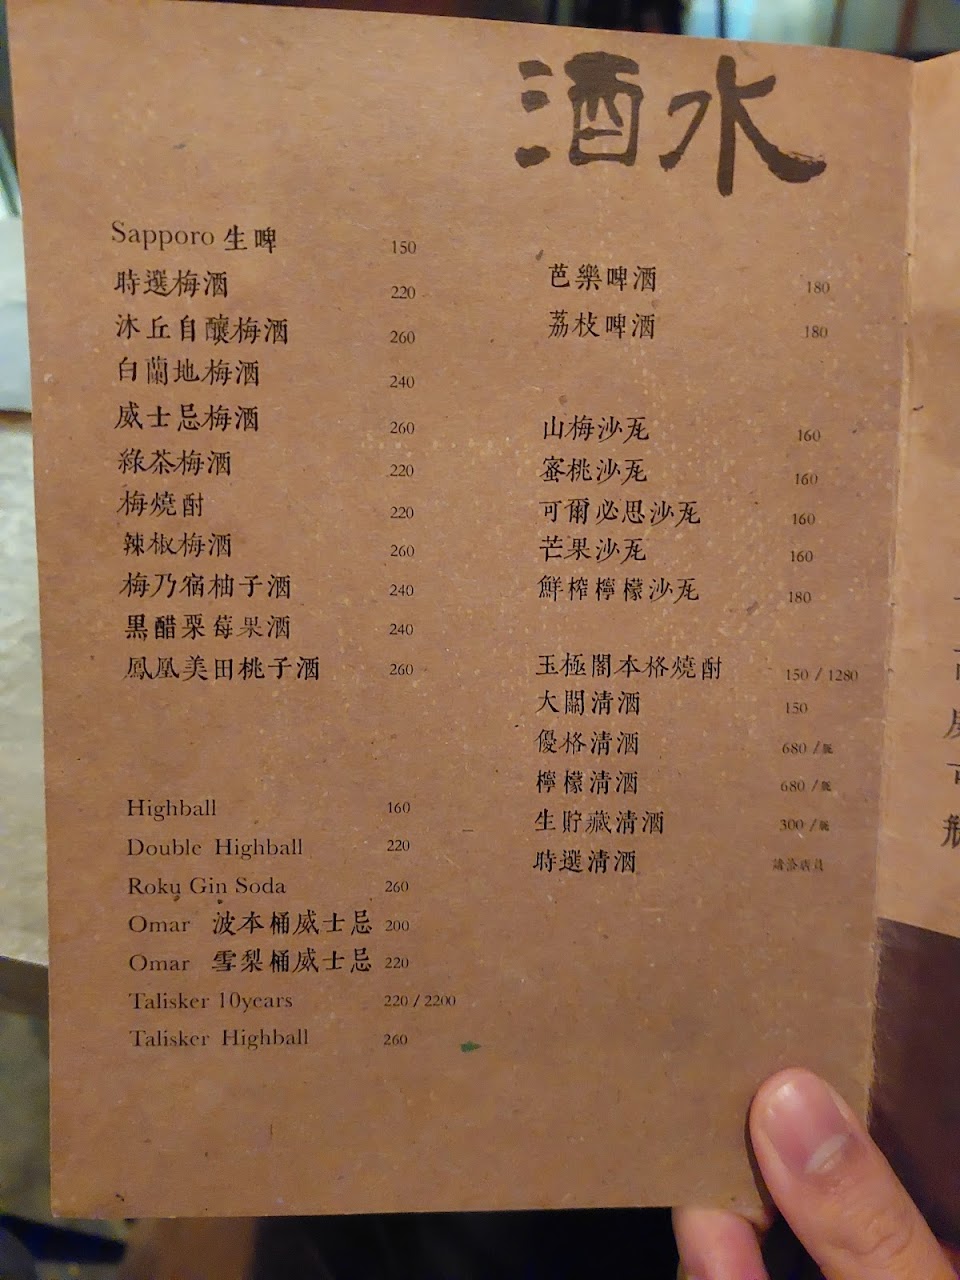 酒水
Sapporo 生啤 150
時選梅酒 220
沐丘自釀梅酒 260
白蘭地梅酒 240
威士忌梅酒 260
綠茶梅酒 220
梅燒酎 220
辣椒梅酒 260
梅乃宿柚子酒 240
黑醋栗莓果酒 240
鳳凰美田桃子酒 260
Highball 160
Double Highball 220
Roku Gin Soda 260
Omar 波本桶威士忌 200
Omar 雪梨桶威士忌 220
Talisker 10years 220 / 2200
Talisker Highball 260
芭樂啤酒 180
荔枝啤酒 180
山梅沙瓦 160
蜜桃沙瓦 160
可爾必思沙瓦 160
芒果沙瓦 160
鮮榨檸檬沙瓦 180
玉極閣本格燒酎 150 / 1280
大關清酒 150
優格清酒 680 / 瓶
檸檬清酒 680 / 瓶
生貯藏清酒 300 / 瓶
時選清酒 請洽店員